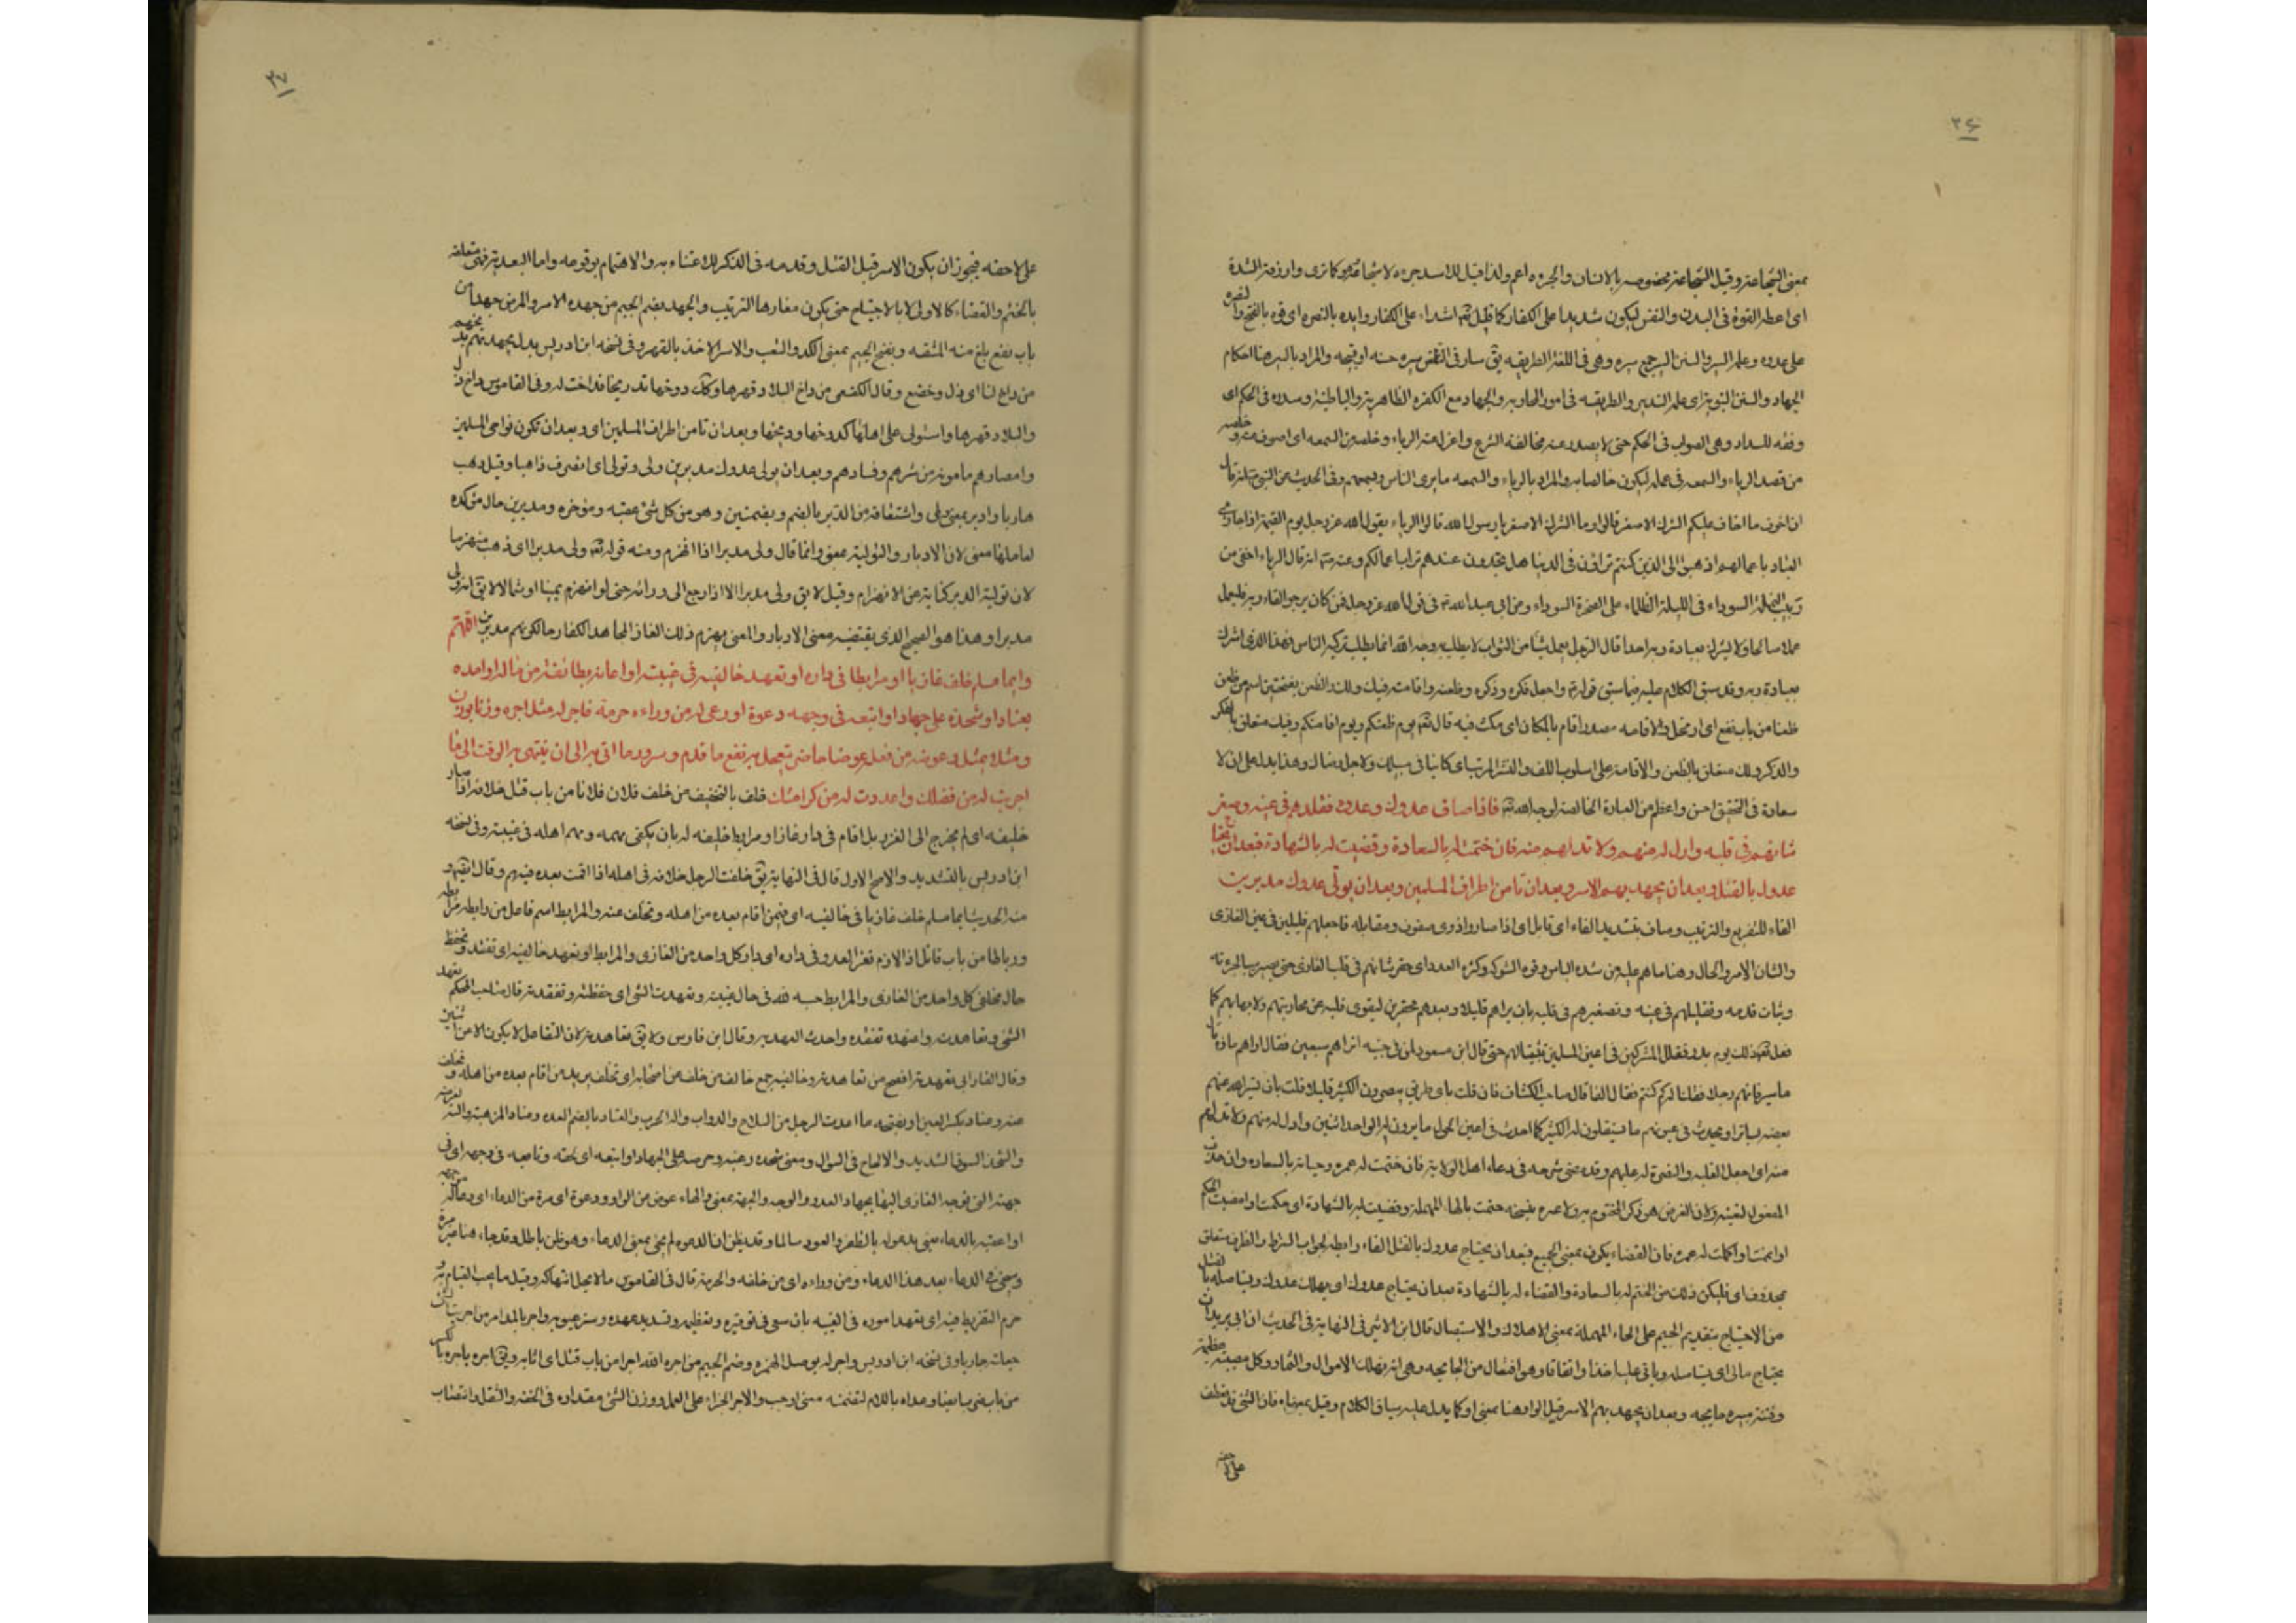 ٣٦
بمعنى الشجاعة وقيل الشجاعة مخصوصة بالانسان والجرءه اعم ولذا قيل للاسد جرءه لا شجاعة وهو كما ترى وارزقه الشدة
اى اعطه القوة فى البدن والنفس ليكون شديدا على الكفار كما قال تعم اشداء على الكفار وايده بالنصره اى قوه بالفتح والنصره
على عدوه وعلمه السير والسنن السير جمع سيره وهى فى اللغة الطريقيه يق سار فى الناس سيره حسنه او قبيحه والمراد بالسير هنا احكام
الجهاد والسنن النبويه اى علمه التدبير والطريقه فى امور المحاربه والجهاد مع الكفره الظاهرية والباطنية وسدده فى الحكم اى
وفقه للسداد وهى الصواب فى الحكم حتى لا يصدر عنه مخالفة الشرع واعزل عنه الرياء وخلصه من السمعه اى اصرف عنه وخلصه
من قصد الرياء والسمعه فى عمله ليكون خالصا به والمراد بالرياء والسمعه ما يرى الناس ويسمعهم وفى الحديث عن النبى صلى قال
ان اخوف ما اخاف عليكم الشرك الاصغر قالوا وما الشرك الاصغر يا رسول الله قال الرياء يقول الله عز وجل يوم القيمة اذا جازى
العباد باعمالهم اذهبوا الى الذين كنتم تراؤن فى الدنيا هل تجدون عندهم ثواب اعمالكم وعنه انه قال الرياء اخفى من
دبيب النملة السوداء فى الليلة الظلماء على الصخرة السوداء وعن ابى عبد الله فى قول الله عز وجل فمن كان يرجو لقاء ربه فليعمل
عملا صالحا ولا يشرك بعبادة ربه احدا قال الرجل يعمل شيئا من الثواب لا يطلب به وجه الله انما يطلب تزكيه الناس فهذا الذى اشرك
بعبادة ربه وقد سبق الكلام عليه فيما سبق قوله واجعل فكره وذكره وظعنه واقامته فيك ولك والظعن بفتحتين اسم من ظعن
ظعنا من باب نفع اى ارتحل والاقامه مصدر اقام بالمكان اى مكث فيه قال تعم يوم ظعنكم ويوم اقامتكم وفيك متعلق بالفكر
والذكر ولك متعلق بالظعن والاقامة على اسلوب اللف والنشر المرتب اى كائنا فى سبيلك ولاجل رضاك وهذا يدل على ان لا
سعادة فى التحقيق احسن واعظم من العبادة الخالصة لوجه الله تعم فاذا صاف عدوك وعدوه فقللهم فى عينه وصغر
شانهم فى قلبه وادل له منهم ولا تدلهم منه فان ختمت له بالسعادة وقضيت له بالشهادة فبعد ان يجتاح
عدوك بالقتل وبعد ان يجهد بهم الاسر وبعد ان تامن اطراف المسلمين وبعد ان يولى عدوك مدبرين
الفاء للتفريع والترتيب وصاف بتشديد الفاء اى قابل اى اذا صاروا ذوى صفوف ومقابله فاجعلهم قليلين فى عين الغازى
والشان الامر والحال وهنا ما هم عليه من شده الباس وقوه الشوكه وكثره العدد اى حقر شانهم فى قلب الغازى حتى يصير سببا لجرءته
وثبات قدمه وتقليلهم فى عينه وتصغيرهم فى قلبه بان يراهم قليلا ويعدهم محقرين ليقوى قلبه عن محاربتهم ولا يهابهم كما
فعل تعم ذلك يوم بدر فقلل المشركين فى اعين المسلمين حتى قال ابن مسعود لمن فى جنبه اتراهم سبعين فقال اراهم مائة قال
فاسرنا منهم رجلا فقلنا له كم كنتم فقال الفا قال صاحب الكشاف فان قلت باى طريق يبصرون الكثير قليلا قلت بان يستر الله عنهم
بعضه بساتر او يحدث فى عيونهم ما يستقلون له الكثير كما احدث فى اعين الحول ما يرون له الواحد اثنين وادل له منهم ولا تدلهم
منه اى اجعل الغلبه والنصرة له عليهم وقد مضى شرحه فى دعاء اهل الولاية فان ختمت له عمره وحياته بالسعاده وان حذف
المفعول لتعينه ولان الغرض هو ذكر المختوم به ولا عبره بنسخه حتمت بالحاء المهملة وقضيت له بالشهادة اى حكمت وامضيت الحكم
او اتممت واكملت له عمره فان القضاء يكون بمعنى الجميع فبعد ان يجتاح عدوك بالقتل الفاء رابطه لجواب الشرط والظرف متعلق
بمحذوف اى فليكن ذلك من الختم له بالسعادة والقضاء له بالشهادة بعد ان يجتاح عدوك اى يهلك عدوك ويستاصله بالقتل
من الاجتياح بتقديم الجيم على الحاء المهملة بمعنى الاهلاك والاستيصال قال ابن الاثير فى النهاية فى الحديث ان ابى يريد ان
يجتاح مالى اى يستاصله وياتى عليه اخذا وانفاقا وهو افتعال من الجايحه وهى انه تهلك الاموال والثمار وكل مصيبة عظيمة
وفتنة مبيره جايحه وبعد ان يجهد بهم الاسر قيل الواو هنا بمعنى او كما يدل عليه سياق الكلام وقيل بمعناه فان الشئ قد يعطف
على لاحقه
٣٧
على لاحقه فيجوز ان يكون الاسر قبل القتل وقدمه فى الذكر للاعتناء به والاهتمام بوقوعه واما البعدية فهى متعلقه
بالختم والقضاء كالاولى لا بالاجتياح حتى يكون مغارها الترتيب والجهد بضم الجيم من جهده الامر والمرض جهدا من
باب نفع بلغ منه المشقه وبفتح الجيم بمعنى الكد والتعب والاسر الاخذ بالقهر وفى نسخه ابن ادريس بدل يجهد بهم يديخهم
من داخ لنا اى ذل وخضع وقال الكفعمى من داخ البلاد قهرها وكك دوخها تدريخا فداخت له وفى القاموس داخ ذل
والبلاد قهرها واستولى على اهلها كدوخها وديخها وبعد ان تامن اطراف المسلمين اى وبعد ان تكون نواحى المسلمين
وامصارهم مامونه من شرهم وفسادهم وبعد ان يولى عدوك مدبرين ولى وتولى اى انصرف ذاهبا وقيل ذهب
هاربا وادبر بمعنى ولى واشتقاقه من الدبر بالضم وبضمتين وهو من كل شئ عقبه ومؤخره ومدبرين حال مؤكده
لعاملها معنى لان الادبار والتولية بمعنى وانما قال ولى مدبرا اذا انهزم ومنه قوله تعم ولى مدبرا اى ذهب منهزما
لان تولية الدبر كناية عن الانهزام وقيل لا يق ولى مدبرا الا اذا رجع الى ورائه حتى لو انهزم يمينا او شمالا لا يق انه ولى
مدبرا وهذا هو الصحيح الذى يقتضيه معنى الادبار والمعنى يهزم ذلك الغاز المجاهد الكفار حالكونهم مدبرين اللهم
وايما مسلم خلف غازيا او مرابطا فى داره او تعهد خالفيه فى غيبته او اعانه بطائفة من ماله او امده
بعتاد او شحذه على جهاد او اتبعه فى وجهه دعوة او رعى له من ورائه حرمة فاجر له مثل اجره وزنا بوزن
ومثلا بمثل وعوضه من فعله عوضا حاضرا يتعجل به نفع ما قدم وسرور ما اتى به الى ان ينتهى به الوقت الى ما
اجريت له من فضلك واعددت له من كرامتك خلف بالتخفيف من خلف فلان فلانا من باب قتل خلافه اذا صار
خليفه اى لم يخرج الى الغزو بل اقام فى دار غاز او مرابط خليفه له بان يكفى مهمه ومهم اهله فى غيبته وفى نسخه
ابن ادريس بالتشديد والاصح الاول قال فى النهاية يق خلفت الرجل خلافه فى اهله اذا اقمت بعده فيهم وقال
منه الحديث ايما مسلم خلف غازيا فى خالفيه اى فيمن اقام بعده من اهله وتخلف عنه والمرابط اسم فاعل من رابط مرابطه
ورباطا من باب قاتل اذا لازم ثغر العدو فى داره اى دار كل واحد من الغازى والمرابط او تعهد خالفيه اى تفقد وتحفظ
حال مخلفى كل واحد من الغازى والمرابط حسبه لله فى حال غيبته وتعهدت الشئ اى حفظته وتفقدته قال صاحب المحكم تعهد
الشئ وتعاهدته واعتهده تفقده واحدث العهد به وقال ابن فارس ولا يق تعاهدته لان التفاعل لا يكون الا من اثنين
وقال الفارابى تعهدته افصح من تعاهدته وخالفيه جمع خالف من خلف عن اصحابه اى تخلف يريد من اقام بعده من اهله وتخلف
عنه وعتاد بكسر العين او بفتحه ما اعدت الرجل من السلاح والدواب واله الحرب والعتاد بالضم العده
والشحذ السوق الشديد والالحاح فى السؤال ومعنى شحذه رغبه وحرصه على الجهاد او اتبعه اى لحقه وتابعه فى وجهه اى فى
جهته التى توجه الغازى اليها بجهاد العدو والوجه والجهة بمعنى والهاء عوض من الواو ودعوة اى مرة من الدعاء اى دعا له
او اعقبه بالدعاء يعنى يدعو له بالظفر والعود سالما وقد يظن ان الدعوه لم يجئ بمعنى الدعاء وهو ظن باطل وقد جاء هنا
وسيجئ فى الدعاء بعد هذا الدعاء ومن ورائه اى من خلفه والحرمة قال فى القاموس ما لا يحل انتهاكه وقيل ما يجب القيام به و
حرم التفريط فيه اى تعهد اموره فى الغيبه بان سعى فى توقيره وتعظيمه وتسديد عهده وستر عيوبه واجر بالمد امر من اجريت
جعلت جاريا وفى نسخه ابن ادريس واجر له بوصل الهمزه وضم الجيم من اجره الله اجرا من باب قتل اى اثابه ويق اجره ياجره بالكسر
من باب ضرب ايضا وعداه باللام لتضمنه معنى اوجب والاجر الجزاء على العمل ووزن الشئ مقداره فى الخفه والثقل وانتصاب